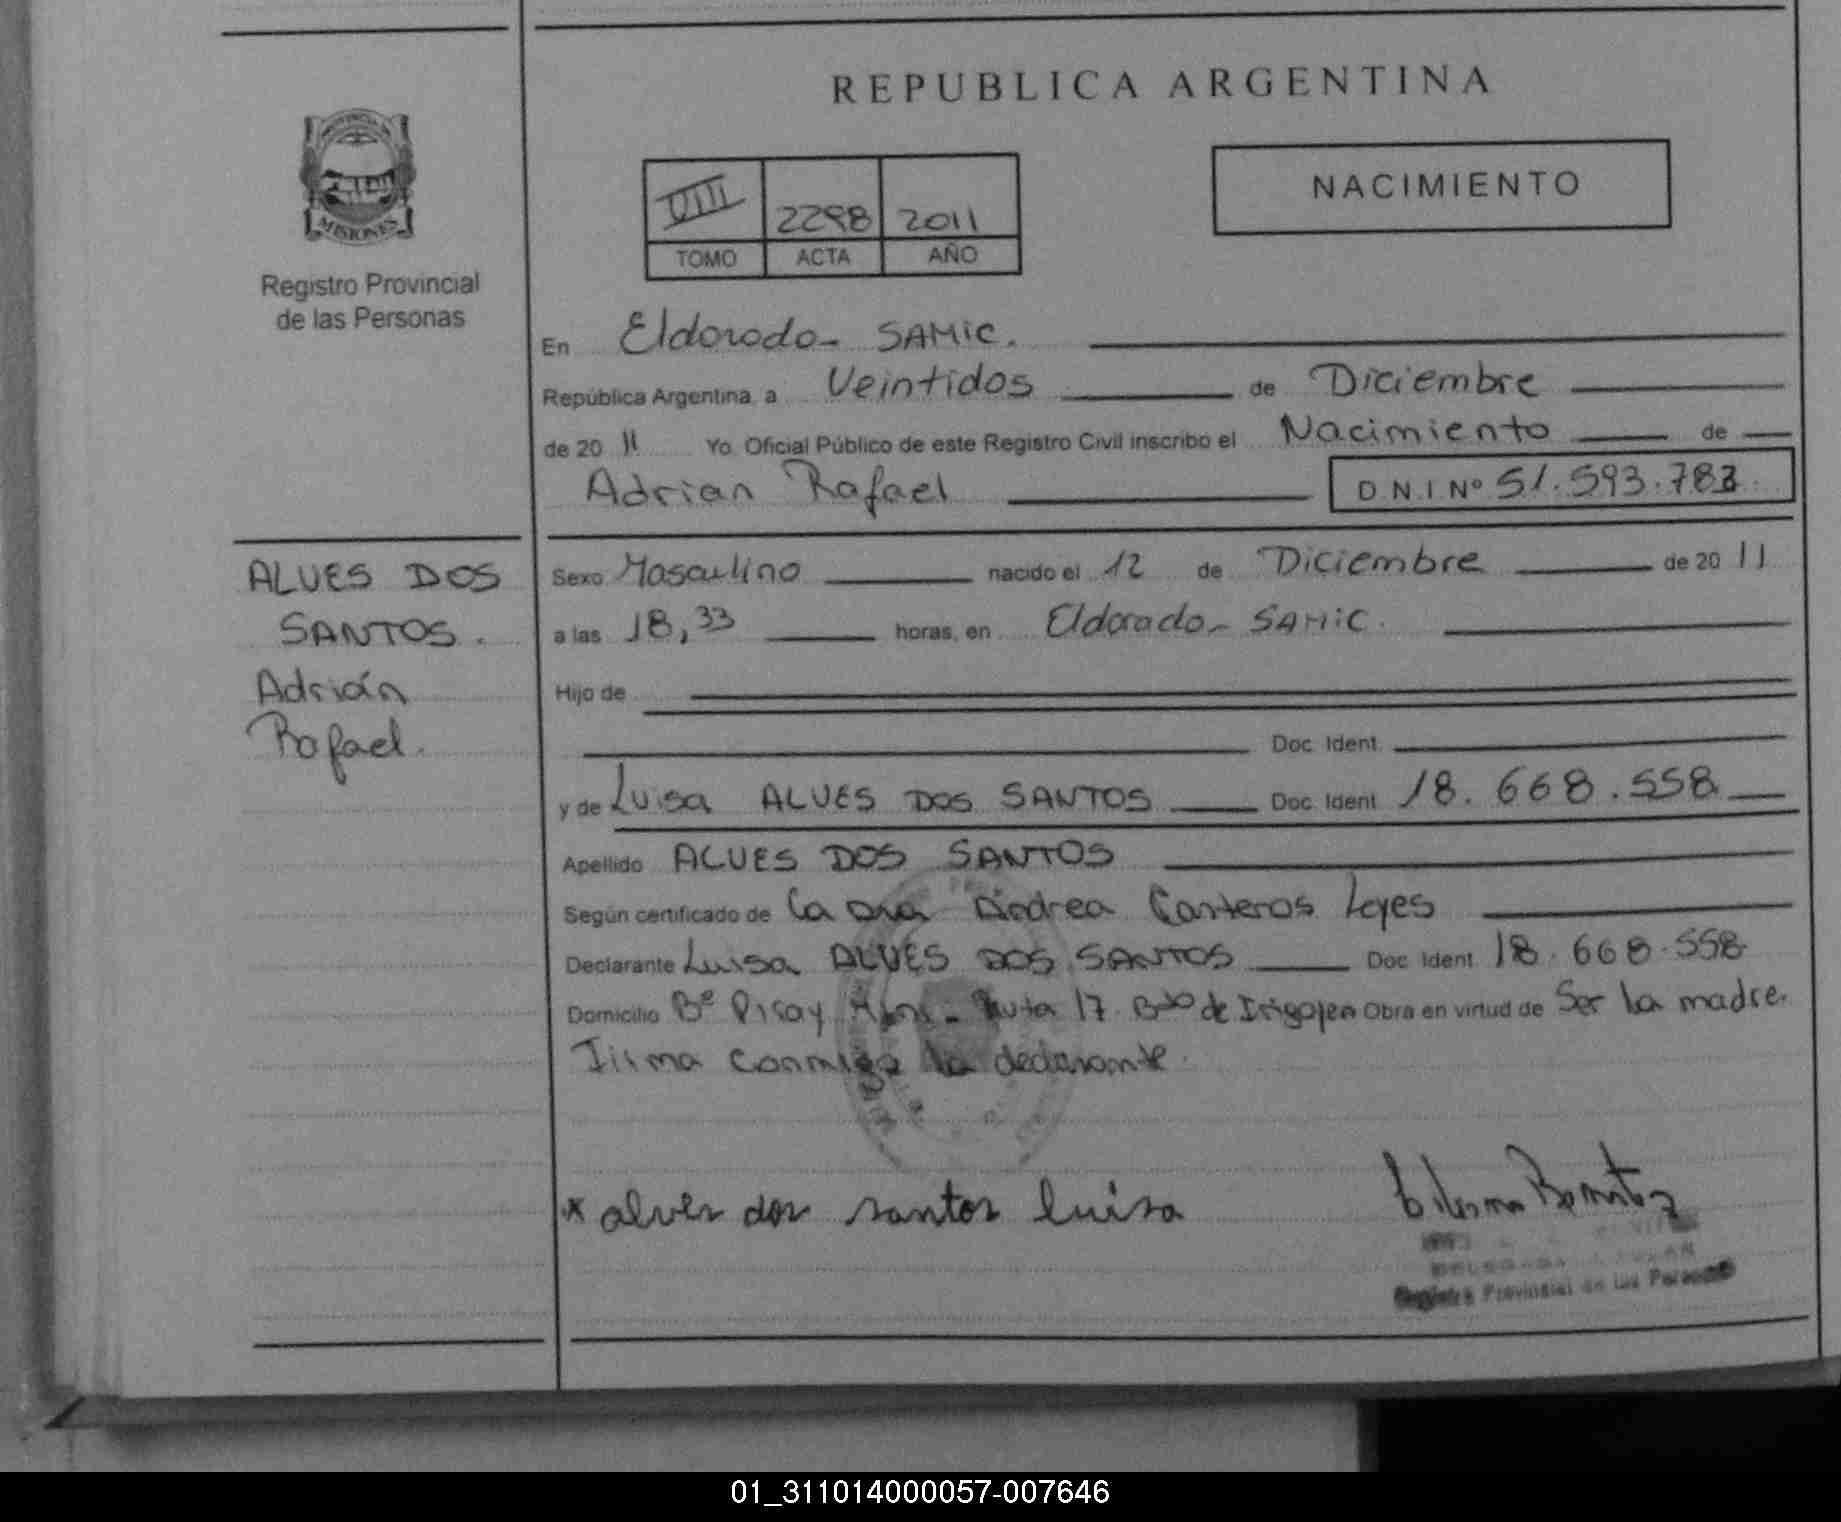 REPUBLICA ARGENTINA
PROVINCIA DE
MISIONES
Registro Provincial
de las Personas
VIII 2298 2011
TOMO ACTA AÑO
NACIMIENTO
En Eldorado - SAMIC.
República Argentina, a Veintidos de Diciembre
de 20 11 Yo, Oficial Público de este Registro Civil inscribo el Nacimiento de
Adrian Rafael D.N.I Nº 51.593.783
ALVES DOS
SANTOS.
Adrián
Rafael.
Sexo Masculino nacido el 12 de Diciembre de 20 11
a las 18,33 horas, en Eldorado - SAMIC.
Hijo de
Doc. Ident.
y de Luisa ALVES DOS SANTOS Doc. Ident. 18.668.558
Apellido ALVES DOS SANTOS
Según certificado de la Dra Andrea Canteros Leyes
Declarante Luisa ALVES DOS SANTOS Doc. Ident. 18.668.558
Domicilio Bº Ruta 17 Bdo de Irigojen Obra en virtud de Ser la madre.
Firma conmigo la declarante.
x alves dos santos luisa
Benitez
Registro Provincial de las Personas
01_311014000057-007646